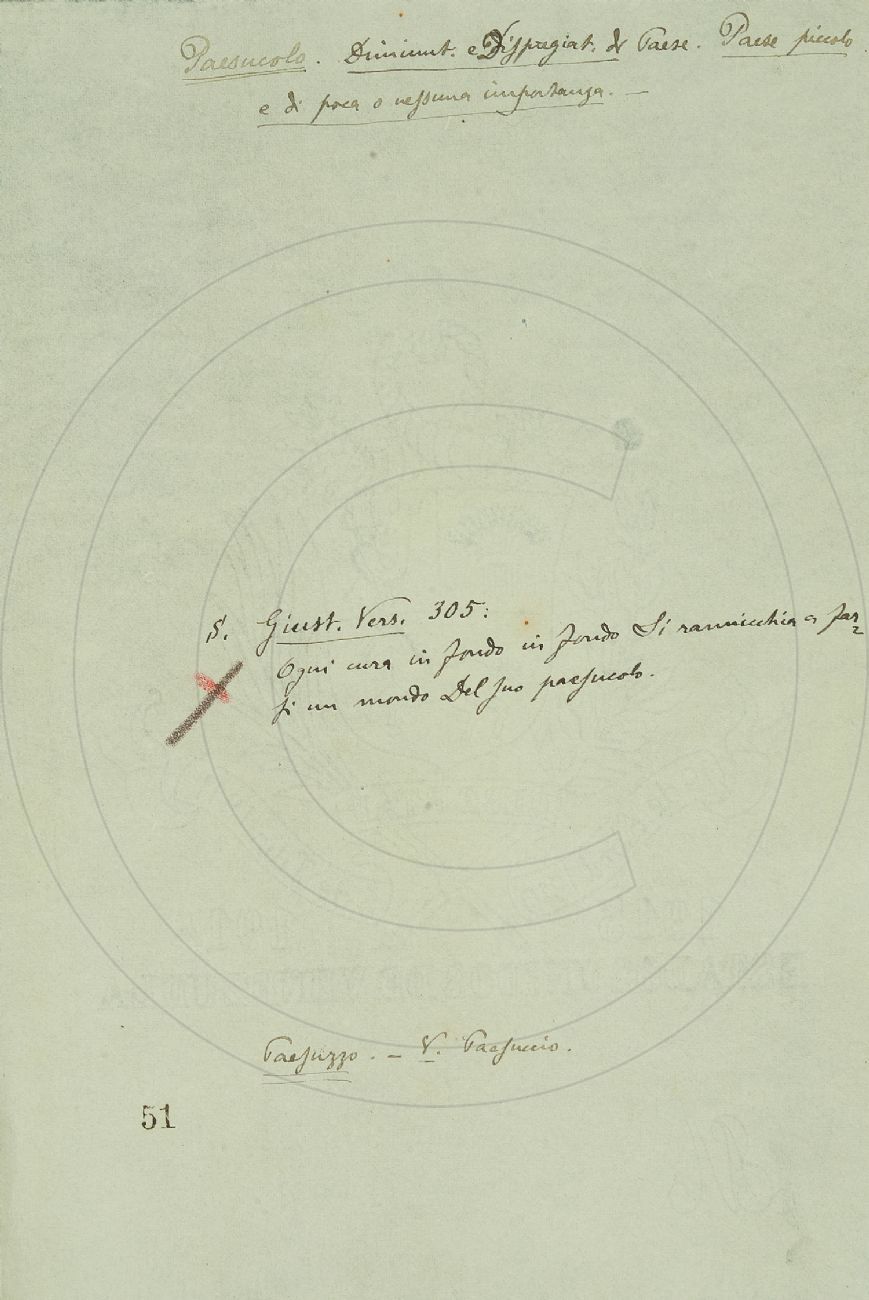 Paesucolo. Diminut. e Dispregiat. di Paese. Paese piccolo
e di poca o nessuna importanza. —
§. Giust. Vers. 305:
Ogni cura in fondo in fondo Si rannicchia a far=
si un mondo Del suo paesucolo.
Paesuzzo. — V. Paesuccio.
51